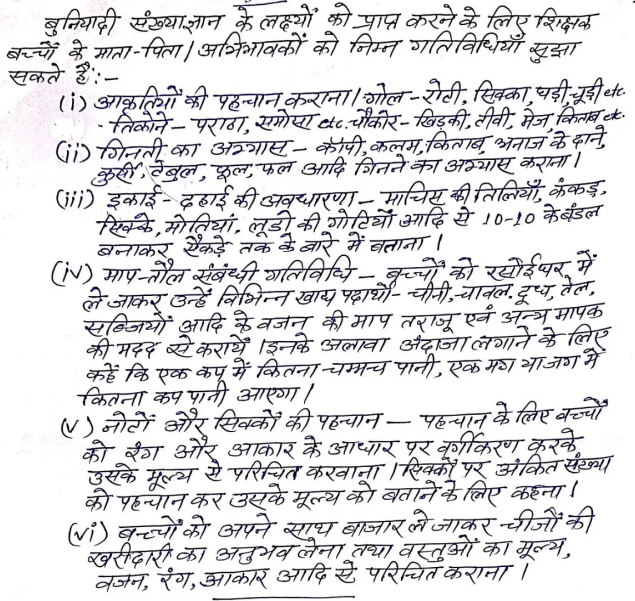 बुनियादी संख्याज्ञान के लक्ष्यों को प्राप्त करने के लिए शिक्षक
बच्चों के माता-पिता/अभिभावकों को निम्न गतिविधियाँ सुझा
सकते हैं:-
(i) आकृतियों की पहचान कराना। गोल-रोटी, सिक्का, घड़ी, चूड़ी etc.
- तिकोने - पराठा, समोसा etc. चौकोर-खिड़की, टीवी, मेज, किताब etc.
(ii) गिनती का अभ्यास - कॉपी, कलम, किताब, अनाज के दाने,
कुर्सी, टेबुल, फूल, फल आदि गिनने का अभ्यास कराना।
(iii) इकाई-दहाई की अवधारणा - माचिस की तिलियाँ, कंकड़,
सिक्के, मोतियां, लूडो की गोटियों आदि से 10-10 के बंडल
बनाकर सैंकड़े तक के बारे में बताना।
(iv) माप-तौल संबंधी गतिविधि - बच्चों को रसोईघर में
ले जाकर उन्हें विभिन्न खाद्य पदार्थों - चीनी, चावल, दूध, तेल,
सब्जियों आदि के वजन की माप तराजू एवं अन्य मापक
की मदद से करायें। इनके अलावा अंदाजा लगाने के लिए
कहें कि एक कप में कितना चम्मच पानी, एक मग या जग में
कितना कप पानी आएगा।
(v) नोटों और सिक्कों की पहचान - पहचान के लिए बच्चों
को रंग और आकार के आधार पर वर्गीकरण करके
उसके मूल्य से परिचित करवाना। सिक्कों पर अंकित संख्या
को पहचान कर उसके मूल्य को बताने के लिए कहना।
(vi) बच्चों को अपने साथ बाजार ले जाकर चीजों की
खरीदारी का अनुभव लेना तथा वस्तुओं का मूल्य,
वजन, रंग, आकार आदि से परिचित कराना।